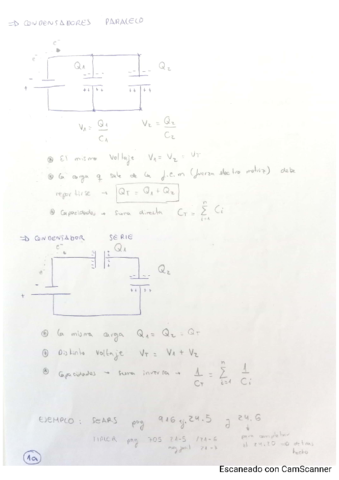 ⇒ CONDENSADORES PARALELO
e⁻
e⁻
Q1
Q2
V1 = Q1/C1   V2 = Q2/C2
El mismo Voltaje V1 = V2 = VT
la carga q sale de la f.e.m (fuerza electro motriz) debe
repartirse → QT = Q1 + Q2
Capacidades → Suma directa CT = Σ Ci
⇒ CONDENSADOR SERIE
e⁻
Q1
e⁻
Q2
la misma carga Q1 = Q2 = QT
Distinto Voltaje VT = V1 + V2
Capacidades → Suma inversa → 1/CT = Σ 1/Ci
EJEMPLO: SEARS pag 916 y 24.5 y 24.6
pag
1a
Escaneado con CamScanner